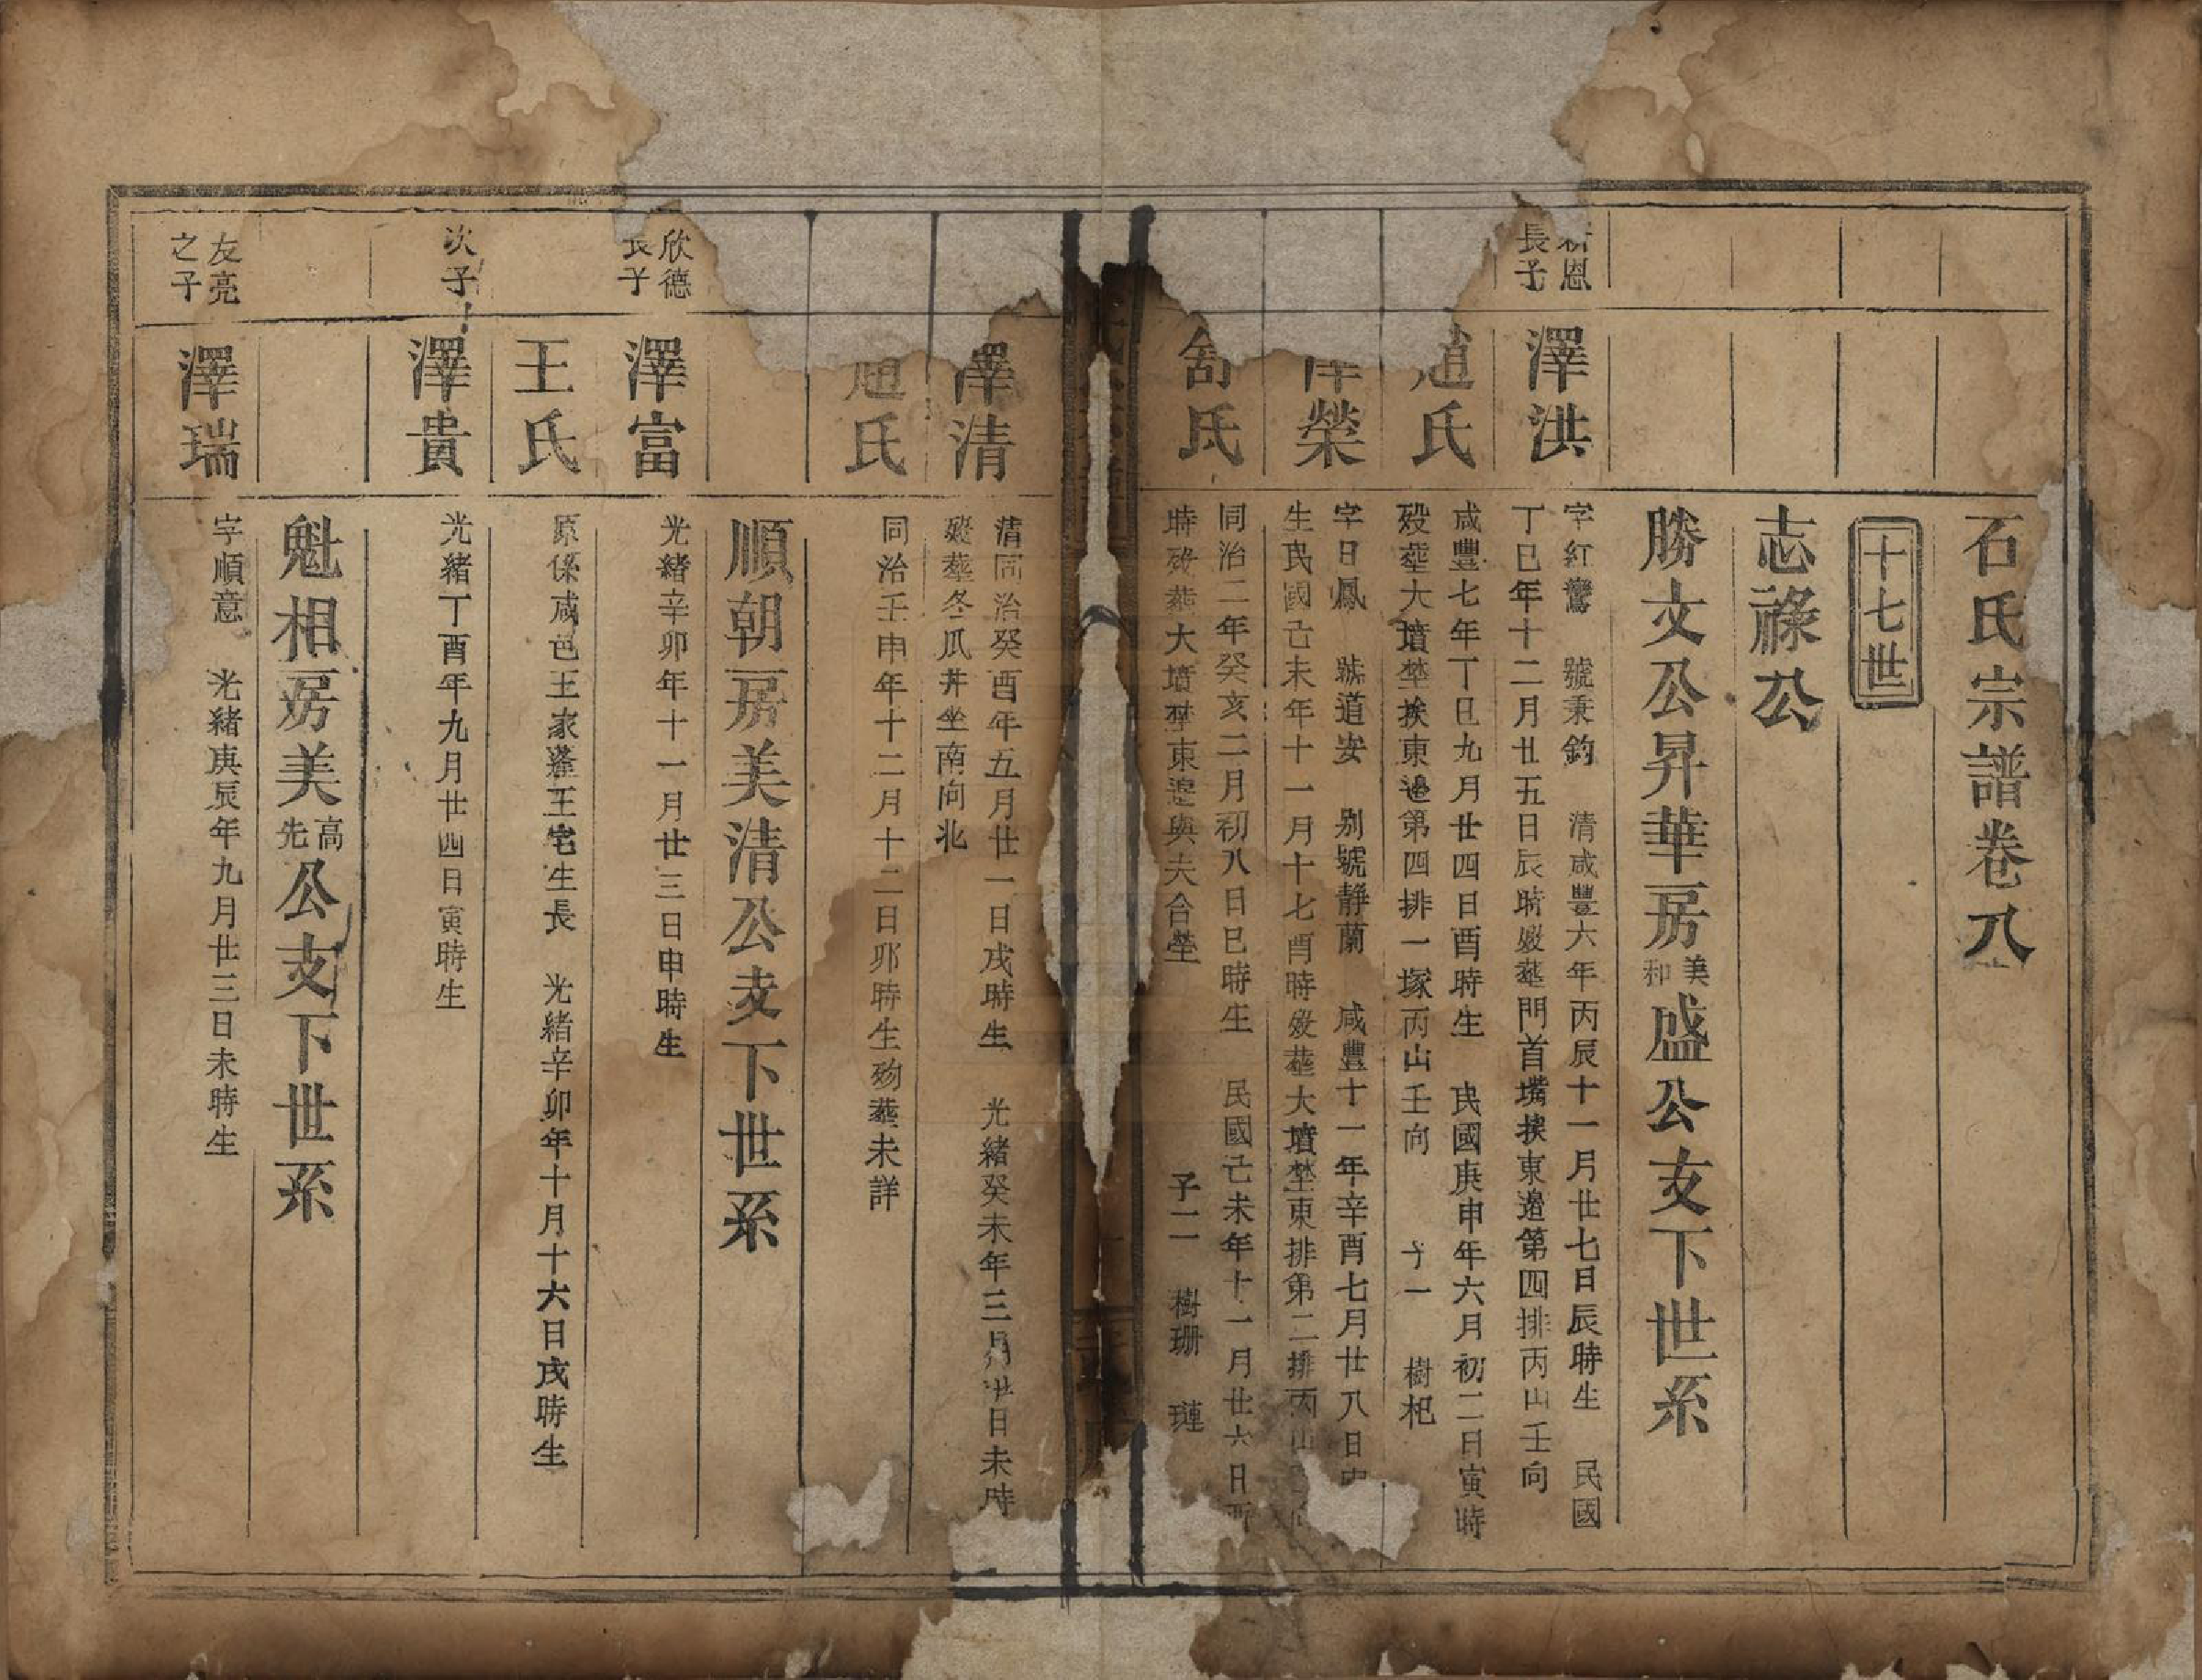 石氏宗譜卷八
十七世
志祿公
勝文公昇華房美和盛公支下世系
恩長子
澤洪
字紅鸞 號秉鈞 清咸豐六年丙辰十一月廿七日辰時生 民國
丁巳年十二月廿五日辰時歿塟門首嘴挨東邉第四排丙山壬向
趙氏
咸豐七年丁巳九月廿四日酉時生 民國庚申年六月初二日寅時
歿塟大墳塋挨東邉第四排一塚丙山壬向 子一 樹杞
澤榮
字日鳳 號道安 别號靜蘭 咸豐十一年辛酉七月廿八日
生民國己未年十一月十七酉時歿塟大墳塋東排第二排丙山
舒氏
同治二年癸亥二月初八日巳時生 民國己未年十一月廿六日酉
時歿塟大墳塋東邉與夫合塋 子二 樹珊 璉
澤清
清同治癸酉年五月廿一日戌時生 光緒癸未年三月廿日未時
歿塟冬瓜井坐南向北
趙氏
同治壬申年十二月十二日卯時生歿塟未詳
順朝房美清公支下世系
欣德長子
澤富
光緒辛卯年十一月廿三日申時生
王氏
原係咸邑王家蓬王宅生長 光緒辛卯年十月十六日戌時生
次子
澤貴
光緒丁酉年九月廿四日寅時生
魁相房美高先公支下世系
友亮之子
澤瑞
字順意 光緒庚辰年九月廿三日未時生